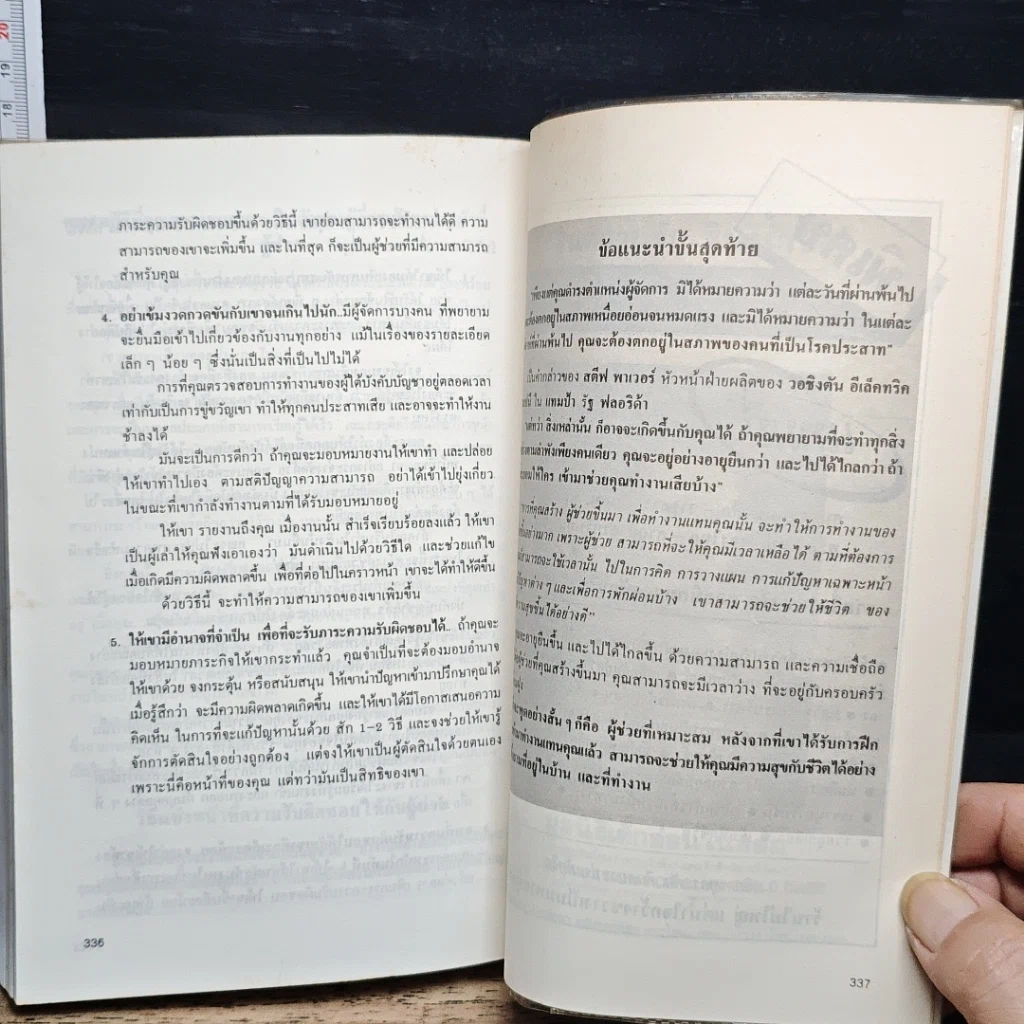 20
19
18
ภาระความรับผิดชอบขึ้นด้วยวิธีนี้ เขาย่อมสามารถจะทำงานได้ดี ความ
สามารถของเขาจะเพิ่มขึ้น และในที่สุด ก็จะเป็นผู้ช่วยที่มีความสามารถ
สำหรับคุณ
4. อย่าเข้มงวดกวดขันกับเขาจนเกินไปนัก..มีผู้จัดการบางคน ที่พยายาม
จะยื่นมือเข้าไปเกี่ยวข้องกับงานทุกอย่าง แม้ในเรื่องของรายละเอียด
เล็ก ๆ น้อย ๆ ซึ่งนั่นเป็นสิ่งที่เป็นไปไม่ได้
การที่คุณตรวจสอบการทำงานของผู้ใต้บังคับบัญชาอยู่ตลอดเวลา
เท่ากับเป็นการขู่ขวัญเขา ทำให้ทุกคนประสาทเสีย และอาจจะทำให้งาน
ช้าลงได้
มันจะเป็นการดีกว่า ถ้าคุณจะมอบหมายงานให้เขาทำ และปล่อย
ให้เขาทำไปเอง ตามสติปัญญาความสามารถ อย่าได้เข้าไปยุ่งเกี่ยว
ในขณะที่เขากำลังทำงานตามที่ได้รับมอบหมายอยู่
ให้เขา รายงานถึงคุณ เมื่องานนั้น สำเร็จเรียบร้อยลงแล้ว ให้เขา
เป็นผู้เล่าให้คุณฟังเอาเองว่า มันดำเนินไปด้วยวิธีใด และช่วยแก้ไข
เมื่อเกิดมีความผิดพลาดขึ้น เพื่อที่ต่อไปในคราวหน้า เขาจะได้ทำให้ดีขึ้น
ด้วยวิธีนี้ จะทำให้ความสามารถของเขาเพิ่มขึ้น
5. ให้เขามีอำนาจที่จำเป็น เพื่อที่จะรับภาระความรับผิดชอบได้.. ถ้าคุณจะ
มอบหมายภาระกิจให้เขากระทำแล้ว คุณจำเป็นที่จะต้องมอบอำนาจ
ให้เขาด้วย จงกระตุ้น หรือสนับสนุน ให้เขานำปัญหาเข้ามาปรึกษาคุณได้
เมื่อรู้สึกว่า จะมีความผิดพลาดเกิดขึ้น และให้เขาได้มีโอกาสเสนอความ
คิดเห็น ในการที่จะแก้ปัญหานั้นด้วย สัก 1-2 วิธี และจงช่วยให้เขารู้
จักการตัดสินใจอย่างถูกต้อง แต่จงให้เขาเป็นผู้ตัดสินใจด้วยตนเอง
เพราะนี่คือหน้าที่ของคุณ แต่ทว่ามันเป็นสิทธิของเขา
336
ข้อแนะนำขั้นสุดท้าย
"เพียงแต่คุณดำรงตำแหน่งผู้จัดการ มิได้หมายความว่า แต่ละวันที่ผ่านพ้นไป
จะต้องตกอยู่ในสภาพเหนื่อยอ่อนจนหมดแรง และมิได้หมายความว่า ในแต่ละ
ที่ผ่านพ้นไป คุณจะต้องตกอยู่ในสภาพของคนที่เป็นโรคประสาท"
เป็นคำกล่าวของ สตีฟ พาเวอร์ หัวหน้าฝ่ายผลิตของ วอชิงตัน อีเล็คทริค
ใน แทมป้า รัฐ ฟลอริด้า
"แต่ว่า สิ่งเหล่านั้น ก็อาจจะเกิดขึ้นกับคุณได้ ถ้าคุณพยายามที่จะทำทุกสิ่ง
ตามลำพังเพียงคนเดียว คุณจะอยู่อย่างอายุยืนกว่า และไปได้ไกลกว่า ถ้า
ให้ใคร เข้ามาช่วยคุณทำงานเสียบ้าง"
การที่คุณสร้าง ผู้ช่วยขึ้นมา เพื่อทำงานแทนคุณนั้น จะทำให้การทำงานของ
อย่างมาก เพราะผู้ช่วย สามารถที่จะให้คุณมีเวลาเหลือได้ ตามที่ต้องการ
สามารถจะใช้เวลานั้น ไปในการคิด การวางแผน การแก้ปัญหาเฉพาะหน้า
ปัญหาต่าง ๆ และเพื่อการพักผ่อนบ้าง เขาสามารถจะช่วยให้ชีวิต ของ
ความสุขขึ้นได้อย่างดี"
จะอายุยืนขึ้น และไปได้ไกลขึ้น ด้วยความสามารถ และความเชื่อถือ
ผู้ช่วยที่คุณสร้างขึ้นมา คุณสามารถจะมีเวลาว่าง ที่จะอยู่กับครอบครัว
พูดอย่างสั้น ๆ ก็คือ ผู้ช่วยที่เหมาะสม หลังจากที่เขาได้รับการฝึก
ทำงานแทนคุณแล้ว สามารถจะช่วยให้คุณมีความสุขกับชีวิตได้อย่าง
ที่อยู่ในบ้าน และที่ทำงาน
337